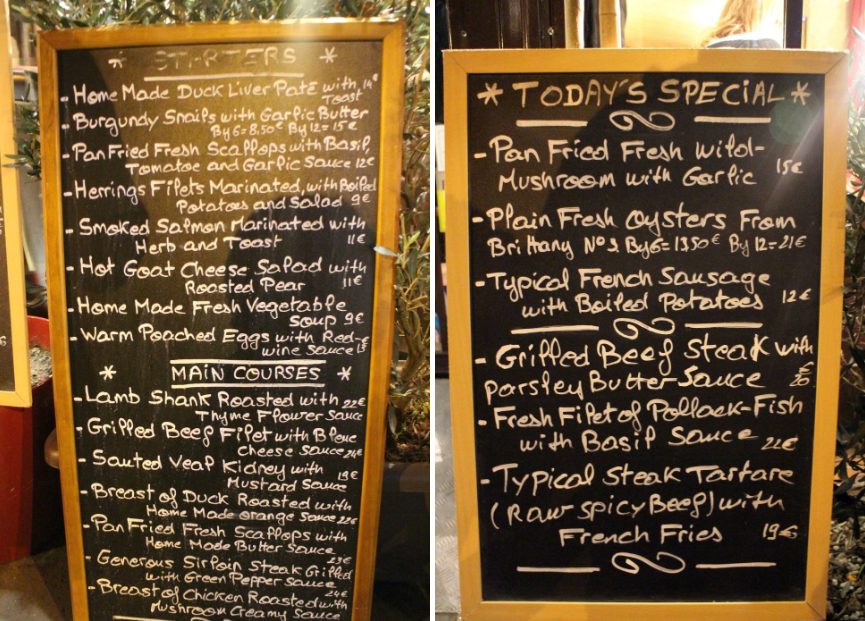 * STARTERS *
- Home Made Duck Liver Pate with 14€
Toast
- Burgundy Snails with Garlic Butter
By 6=8,50€ By 12=15€
- Pan Fried Fresh Scallops with Basil,
Tomatoe and Garlic Sauce 12€
- Herrings Filets Marinated, with Boiled
Potatoes and Salad 9€
- Smoked Salmon Marinated with
Herb and Toast 11€
- Hot Goat Cheese Salad with
Roasted Pear 11€
- Home Made Fresh Vegetable
Soup 9€
- Warm Poached Eggs with Red-
wine Sauce
* MAIN COURSES *
- Lamb Shank Roasted with 22€
Thyme Flower Sauce
- Grilled Beef Filet with Bleue
Cheese Sauce 24€
- Sauted Veal Kidney with
Mustard Sauce 19€
- Breast of Duck Roasted with
Home Made orange Sauce 22€
- Pan Fried Fresh Scallops with
Home Made Butter Sauce
23€
- Generous Sirloin Steak Grilled
with Green Pepper Sauce
24€
- Breast of Chicken Roasted with
Mushroom Creamy Sauce
* TODAY'S SPECIAL *
- Pan Fried Fresh Wild-
Mushroom with Garlic 15€
- Plain Fresh Oysters From
Brittany N°2 By 6=13,50€ By 12=21€
- Typical French Sausage
with Boiled Potatoes 12€
- Grilled Beef Steak with
parsley Butter Sauce 20€
- Fresh Filet of Pollack-Fish
with Basil Sauce 22€
- Typical Steak Tartare
(Raw spicy Beef) with
French Fries 19€